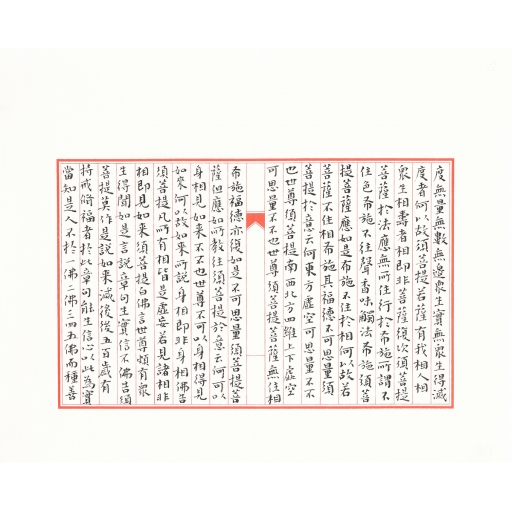 度無量無數無邊眾生實無眾生得滅
度者何以故須菩提若菩薩有我相人相
眾生相壽者相即非菩薩復次須菩提
菩薩於法應無所住行於布施所謂不
住色布施不住聲香味觸法布施須菩
提菩薩應如是布施不住於相何以故若
菩薩不住相布施其福德不可思量須
菩提於意云何東方虛空可思量不不
也世尊須菩提南西北方四維上下虛空
可思量不不也世尊須菩提菩薩無住相
布施福德亦復如是不可思量須菩提菩
薩但應如所教住須菩提於意云何可以
身相見如來不不也世尊不可以身相得見
如來何以故如來所說身相即非身相佛告
須菩提凡所有相皆是虛妄若見諸相非
相即見如來須菩提白佛言世尊頗有眾
生得聞如是言說章句生實信不佛告須
菩提莫作是說如來滅後後五百歲有
持戒修福者於此章句能生信心以此為實
當知是人不於一佛二佛三四五佛而種善